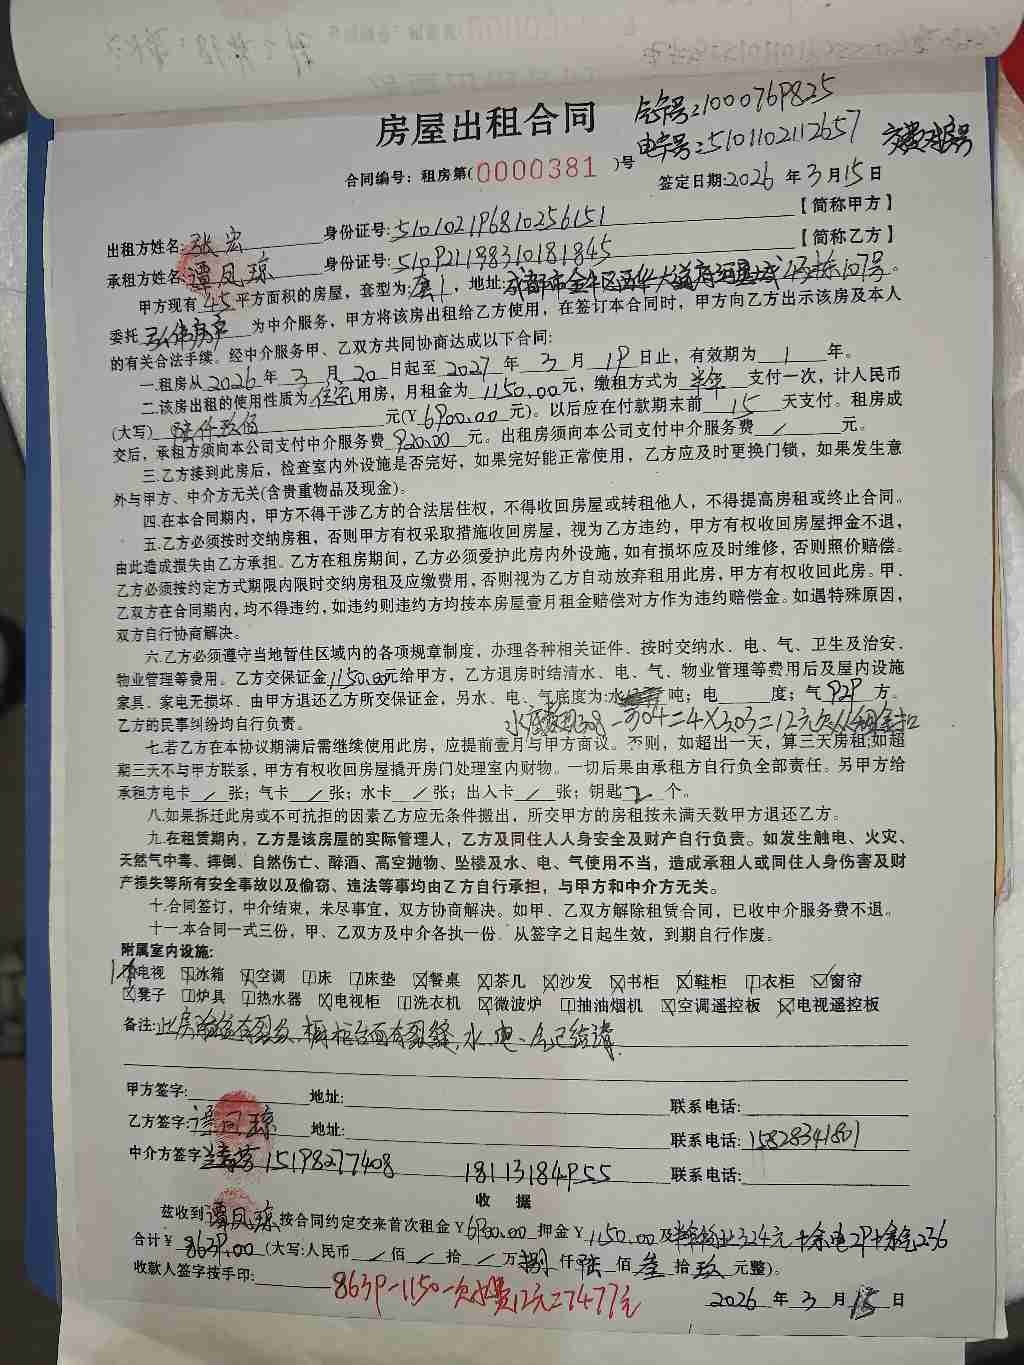 房屋出租合同
气卡号:1000769825
电卡号:5101102112657
合同编号：租房第(0000381)号
签定日期:2026年3月15日
出租方姓名:张宏 身份证号:510102196810256151 【简称甲方】
承租方姓名:谭凤琼 身份证号:510921198310181845 【简称乙方】
甲方现有45平方面积的房屋，套型为:套一，地址:成都市金牛区西华大道 107号。
委托 为中介服务，甲方将该房出租给乙方使用，在签订本合同时，甲方向乙方出示该房及本人
的有关合法手续。经中介服务甲、乙双方共同协商达成以下合同:
一.租房从2026年3月20日起至2027年3月19日止，有效期为1年。
二.该房出租的使用性质为住宅用房，月租金为1150.00元，缴租方式为半年支付一次，计人民币
(大写)陆仟玖佰元(¥6900.00元)。以后应在付款期末前15天支付。租房成
交后，承租方须向本公司支付中介服务费920.00元。出租房须向本公司支付中介服务费/元。
三.乙方接到此房后，检查室内外设施是否完好，如果完好能正常使用，乙方应及时更换门锁，如果发生意
外与甲方、中介方无关(含贵重物品及现金)。
四.在本合同期内，甲方不得干涉乙方的合法居住权，不得收回房屋或转租他人，不得提高房租或终止合同。
五.乙方必须按时交纳房租，否则甲方有权采取措施收回房屋，视为乙方违约，甲方有权收回房屋押金不退，
由此造成损失由乙方承担。乙方在租房期间，乙方必须爱护此房内外设施，如有损坏应及时维修，否则照价赔偿。
乙方必须按约定方式期限内限时交纳房租及应缴费用，否则视为乙方自动放弃租用此房，甲方有权收回此房。甲、
乙双方在合同期内，均不得违约，如违约则违约方均按本房屋壹月租金赔偿对方作为违约赔偿金。如遇特殊原因，
双方自行协商解决。
六.乙方必须遵守当地暂住区域内的各项规章制度，办理各种相关证件、按时交纳水、电、气、卫生及治安、
物业管理等费用。乙方交保证金1150.00元给甲方，乙方退房时结清水、电、气、物业管理等费用后及屋内设施
家具、家电无损坏、由甲方退还乙方所交保证金，另水、电、气底度为:水 吨；电 度；气929方。
乙方的民事纠纷均自行负责。
水底数308-304=4×3.03=12元
七.若乙方在本协议期满后需继续使用此房，应提前壹月与甲方商议。否则，如超出一天，算三天房租;如超
期三天不与甲方联系，甲方有权收回房屋撬开房门处理室内财物。一切后果由承租方自行负全部责任。另甲方给
承租方电卡/张；气卡/张；水卡/张；出入卡/张；钥匙2个。
八.如果拆迁此房或不可抗拒的因素乙方应无条件搬出，所交甲方的房租按未满天数甲方退还乙方。
九.在租赁期内，乙方是该房屋的实际管理人，乙方及同住人人身安全及财产自行负责。如发生触电、火灾、
天然气中毒、摔倒、自然伤亡、醉酒、高空抛物、坠楼及水、电、气使用不当，造成承租人或同住人身伤害及财
产损失等所有安全事故以及偷窃、违法等事均由乙方自行承担，与甲方和中介方无关。
十.合同签订，中介结束，未尽事宜，双方协商解决。如甲、乙双方解除租赁合同，已收中介服务费不退。
十一.本合同一式三份，甲、乙双方及中介各执一份。从签字之日起生效，到期自行作废。
附属室内设施:
电视 冰箱 空调 床 床垫 餐桌 茶几 沙发 书柜 鞋柜 衣柜 窗帘
凳子 炉具 热水器 电视柜 洗衣机 微波炉 抽油烟机 空调遥控板 电视遥控板
备注:此房 有裂 ，橱柜台面有裂缝，水、电、气已结清.
甲方签字: 地址: 联系电话:
乙方签字:谭凤琼 地址: 联系电话:15828341801
中介方签字 15198277408 18113184955 联系电话:
收 据
兹收到谭凤琼按合同约定交来首次租金¥6900.00押金¥1150.00及半年物业324元+余电29+余气236
合计¥8639.00(大写:人民币/佰/拾/万捌仟陆佰叁拾玖元整)。
收款人签字按手印:
8639-1150-欠水费12元=7477元
2026年3月15日